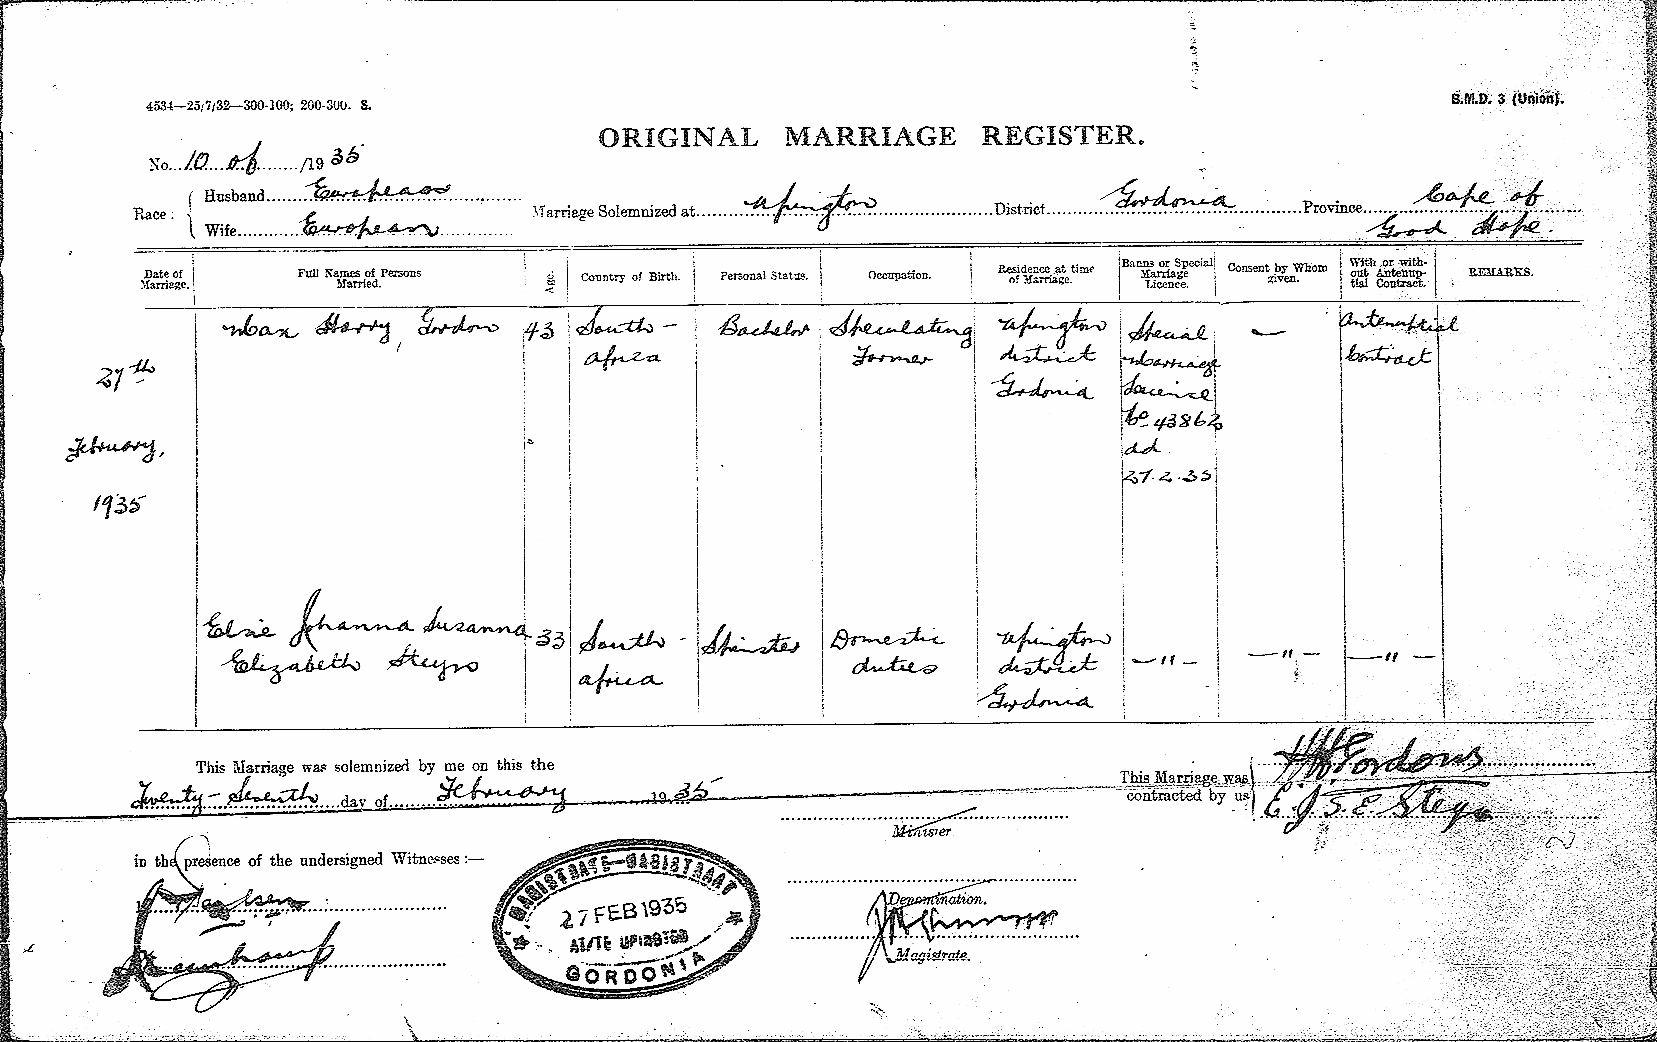 4534—25/7/32—300-100; 200-300. S.
B.M.D. 3 (Union).
ORIGINAL MARRIAGE REGISTER.
No. 10 of /1935
Race: Husband European
Wife European
Marriage Solemnized at Upington District Gordonia Province Cape of
Good Hope.
Date of Marriage. Full Names of Persons Married. Age. Country of Birth. Personal Status. Occupation. Residence at time of Marriage. Banns or Special Marriage Licence. Consent by Whom given. With or with-out Antenup-tial Contract. REMARKS.
27th
February,
1935
Max Harry Gordon 43 South - Bachelor Speculating Upington Special — Antenuptial
Africa Farmer district Marriage Contract
Gordonia License
No 43862
dd
27.2.35
Elsie Johanna Susanna 33 South - Spinster Domestic Upington
Elizabeth Steyn Africa duties district —"— —"— —"—
Gordonia
This Marriage was solemnized by me on this the
Twenty-Seventh day of February 1935
This Marriage was
contracted by us
Gordon
E. J. S. E. Steyn
Minister
in the presence of the undersigned Witnesses:—
Denomination.
Magistrate.
MAGISTRATE—MAGISTRAAT
27 FEB 1935
AT/TE UPINGTON
GORDONIA